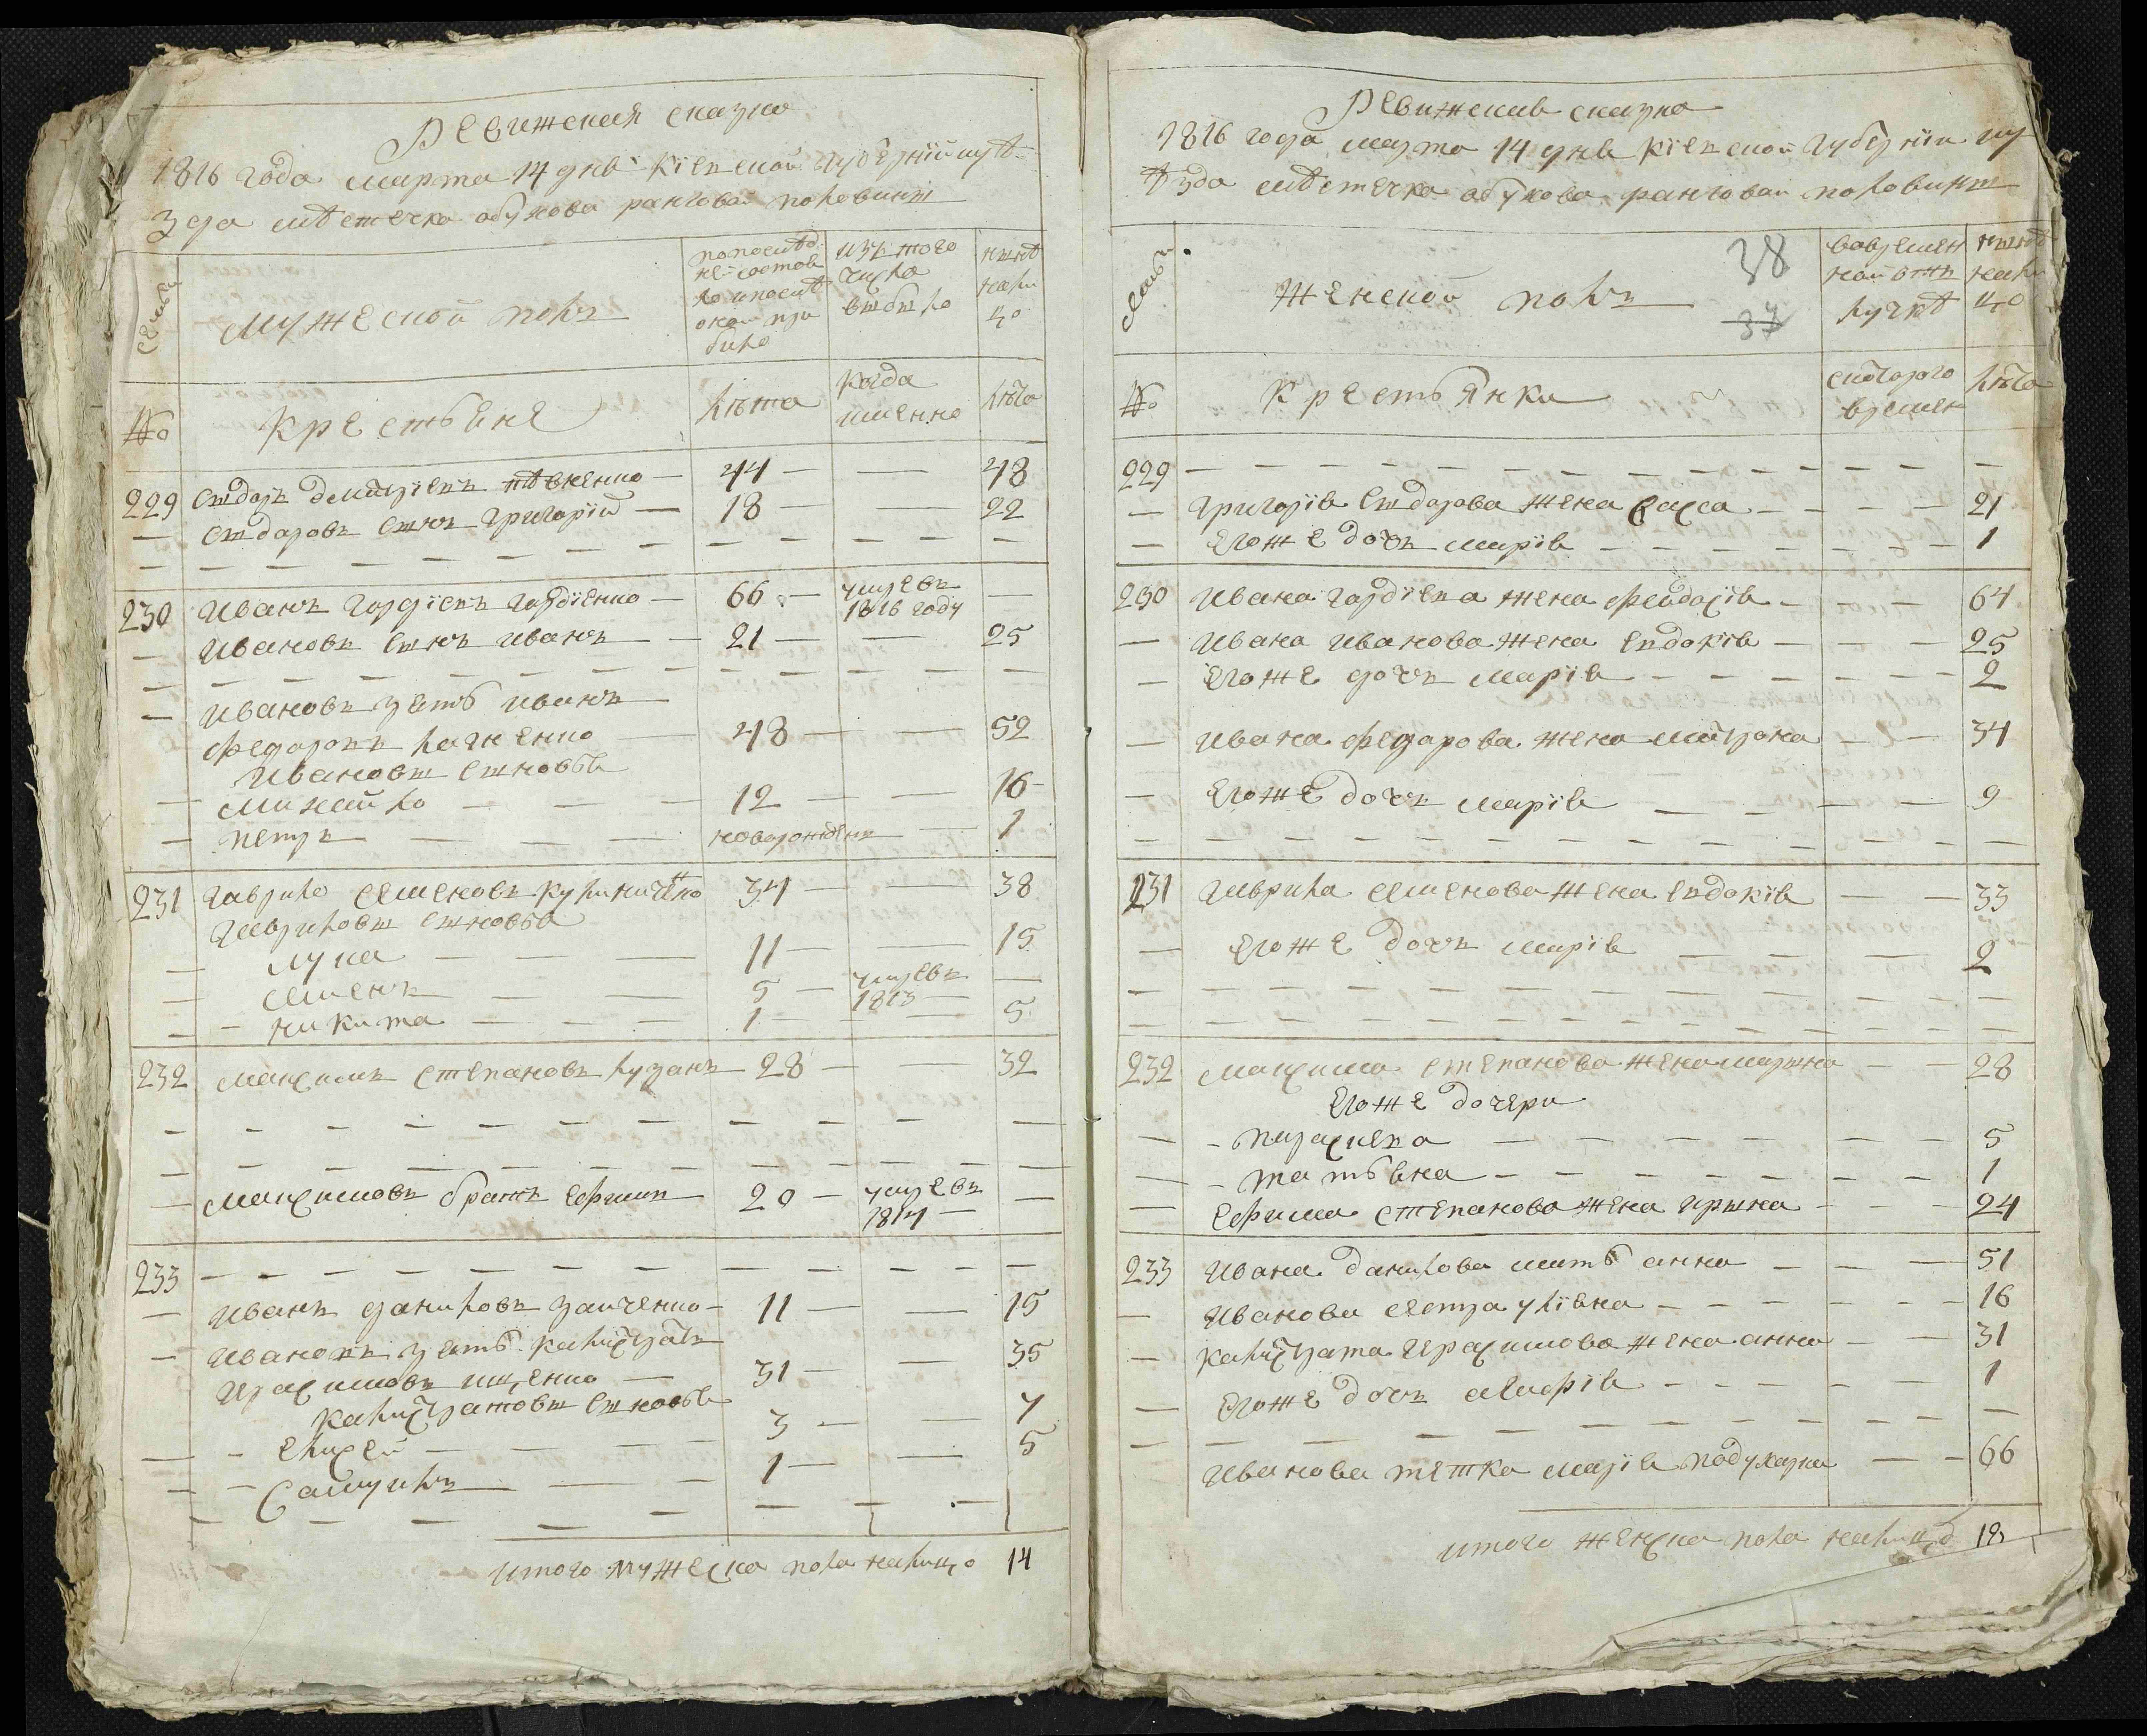 Ревижския сказка
1816 года марта 14 дня Кіевской губерніи уѣ
зда мѣстечка обухова ранговой половины
семьи
Мужеской полъ
по послѣд
ней состоя
ло и послѣ
оной при
было
изъ того
числа
выбыло
нынѣ
нали
цо
№
Крестьяне
лѣта
когда
именно
лѣта
229 Сидоръ Дмитріевъ — 44 — — 48
— Сидоровъ сынъ григорій — 18 — — 22
230 Иванъ Гордіевъ Гордіенко — 66 — умревъ 1816 году —
— Ивановъ сынъ иванъ — 21 — — 25
— Ивановъ зять иванъ
Федоровъ — 48 — — 52
Ивановы сыновья
— Михайло — 12 — — 16
— Петръ — новорожденъ — 1
231 Гаврило Семеновъ — 34 — — 38
Гавриловы сыновья
— Лука — 11 — — 15
— Семенъ — 5 — умревъ 1813 —
— Никита — 1 — — 5
232 Максимъ Степановъ лузанъ — 28 — — 32
— Максимовъ братъ Ефимъ — 20 — умревъ 1814 —
233 — — — — —
— Иванъ даниловъ заиченко — 11 — — 15
— Ивановъ зять Калистратъ
Ирасимовъ ищенко — 31 — — 35
Калистратовы сыновья
— Елисей — 3 — — 7
— Самуилъ — 1 — — 5
итого мужеска пола налицо 14
Ревижская сказка
1816 года марта 14 дня Кіевской губерніи уѣ
ѣзда мѣстечка обухова ранговой половины
38
37
семьи
Женской полъ
во времен
ной отъ
лучкѣ
нынѣ
нали
цо
№
Крестьянки
съ котораго
времен
лѣта
229 — — — — —
— Григорія Сидорова жена — 21
— Егожъ дочь марія — 1
230 Ивана гордіева жена феодосія — 64
— Ивана Иванова жена Евдокія — 25
— Егоже дочь марія — 2
— Ивана федорова жена матрона — 34
— Егоже дочь марія — 9
231 Гаврила Семенова жена Евдокія — 33
— Егоже дочь марія — 2
232 Максима Степанова жена марина — 28
Егоже дочери
— параскева — 5
— татьяна — 1
— Ефима Степанова жена ирина — 24
233 Ивана данилова мать анна — 51
— Иванова сестра уліяна — 16
— Калистрата Ирасимова жена анна — 31
— Егоже дочь — 1
Иванова тетка марія — 66
итого женска пола налицо 18